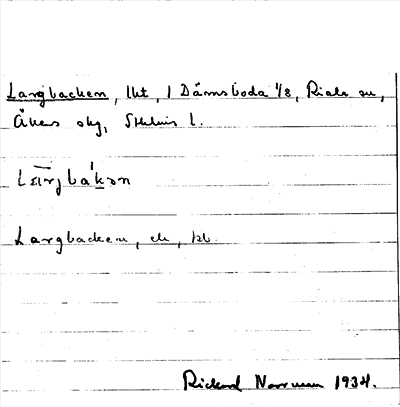 Largbacken, lht, 1 Därnsboda 1/8, Riala sn,
Åkers skg, Sthlms l.
Lärgbákən
Largbacken, ek, kb.
Rickard Norrman 1934.